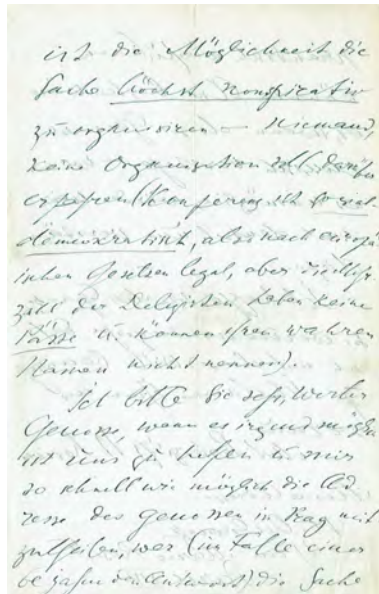 ist die Möglichkeit die
Sache höchst konspirativ
zu organisiren – Niemand,
keine Organisation soll darüber
erfahren (Konferenz ist sozial-
demokratisch, also nach europä-
ischen Gesetzen legal, aber die Mehr-
zahl der Delegirten haben keine
Pässe u. können ihren wahren
Namen nicht nennen).
Ich bitte Sie sehr, werter
Genosse, wenn es irgend möglich
ist uns zu helfen u. mir
so schnell wie möglich die Ad-
resse des Genossen in Prag mit
zutheilen, wer (im Falle einer
bejahenden Antwort) die Sache